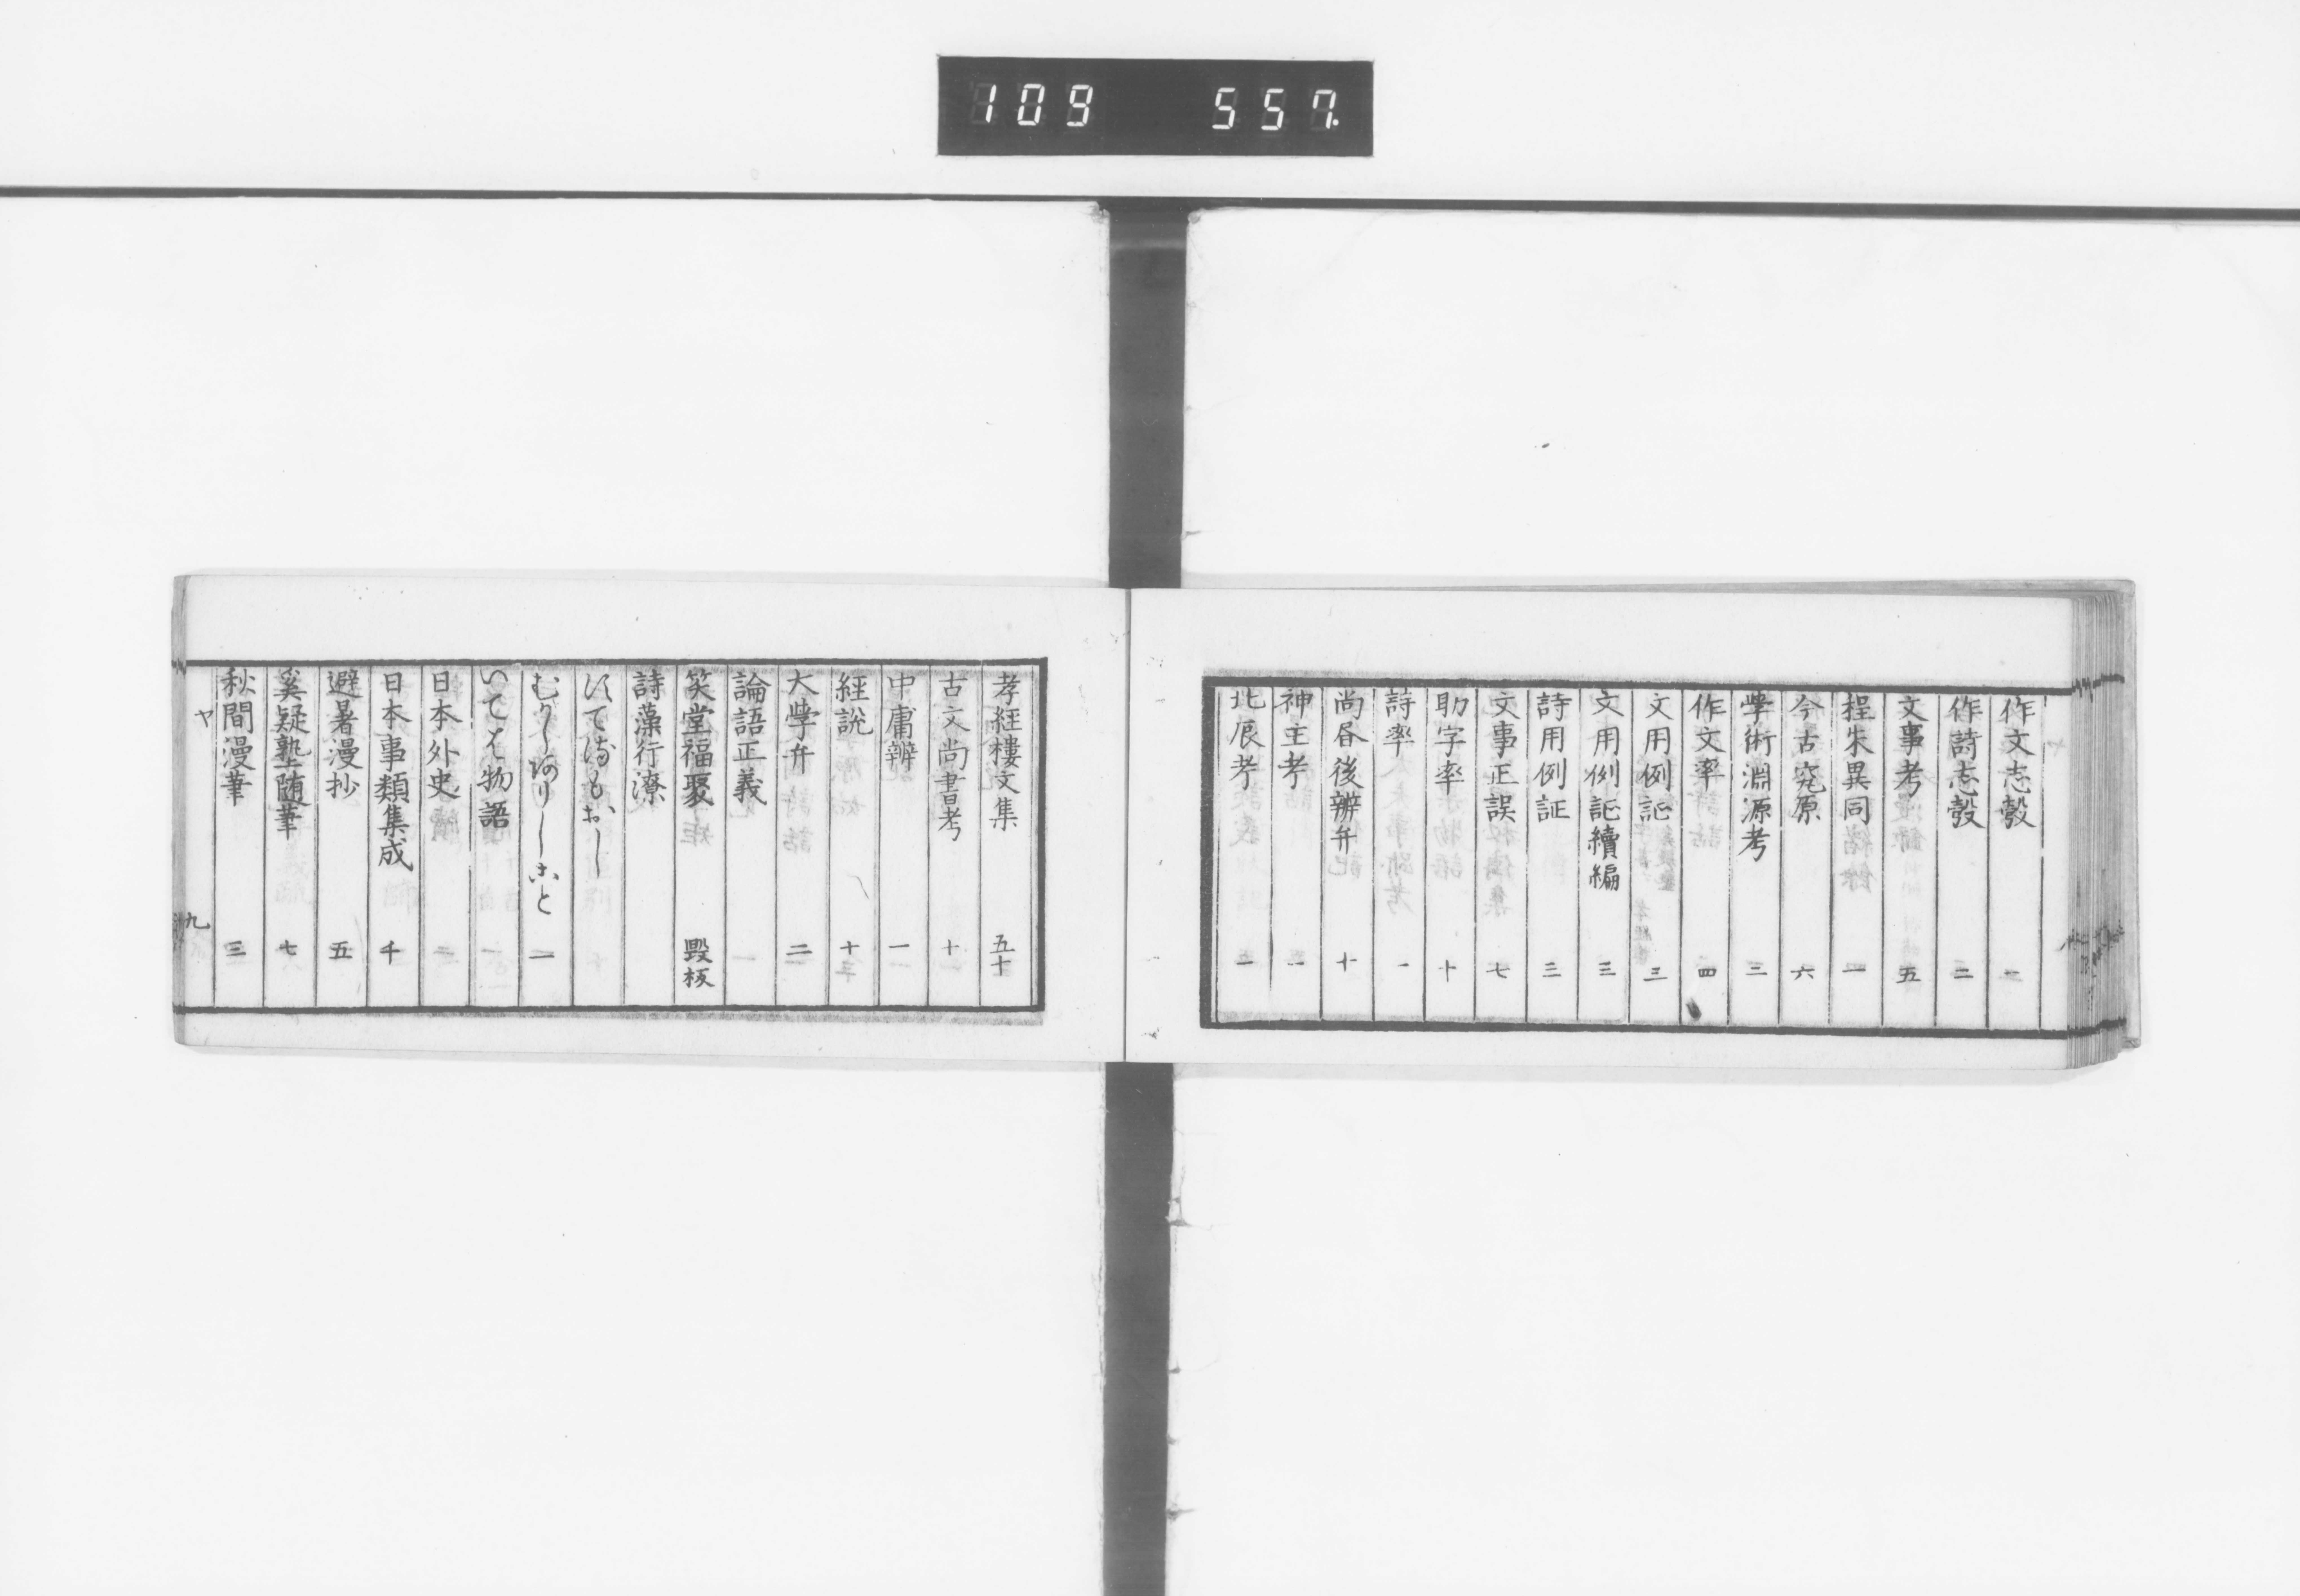 109 557
作文志彀 二
作詩志彀 二
文事考 五
程朱異同 一
今古究原 六
學術淵源考 三
作文率 四
文用例証 三
文用例証續編 三
詩用例証 三
文事正誤 七
助字率 十
詩率 一
尚書後辨弁 十
神主考 一
北辰考 一
孝経樓文集 五十
古文尚書考 十
中庸辨 一
経説 十
大學弁 二
論語正義
笑堂福聚 毀板
詩藻行潦
一
いては物語 一
日本外史 二
日本事類集成 千
避暑漫抄 五
奚疑塾随筆 七
秋間漫筆 三
ヤ 九